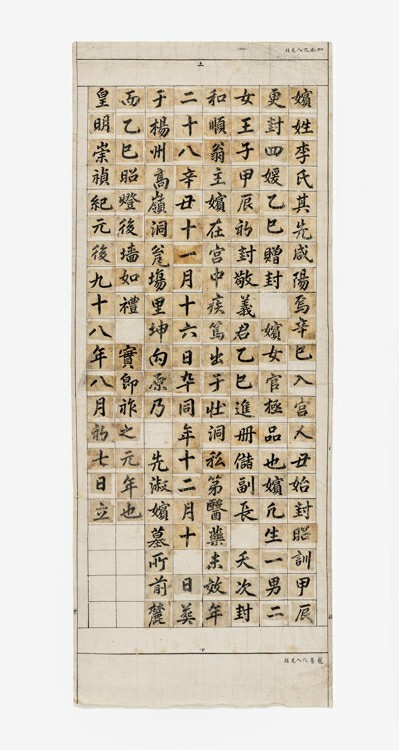 上
嬪姓李氏其先咸陽焉辛巳入宮人丑始封昭訓甲辰
更封四媛乙巳贈封 嬪女官極品也嬪凡生一男二
女王子甲辰初封敬義君乙巳進冊儲副長 夭次封
和順翁主嬪在宮中疾篤出于壯洞私第醫藥未效年
二十八辛丑十一月十六日卒同年十二月十 日葬
于楊州高嶺洞瓮塲里坤向原乃 先淑嬪墓所前麓
而乙巳昭燈後墻如禮 實卽祚之元年也
皇明崇禎紀元後九十八年八月初七日立
下